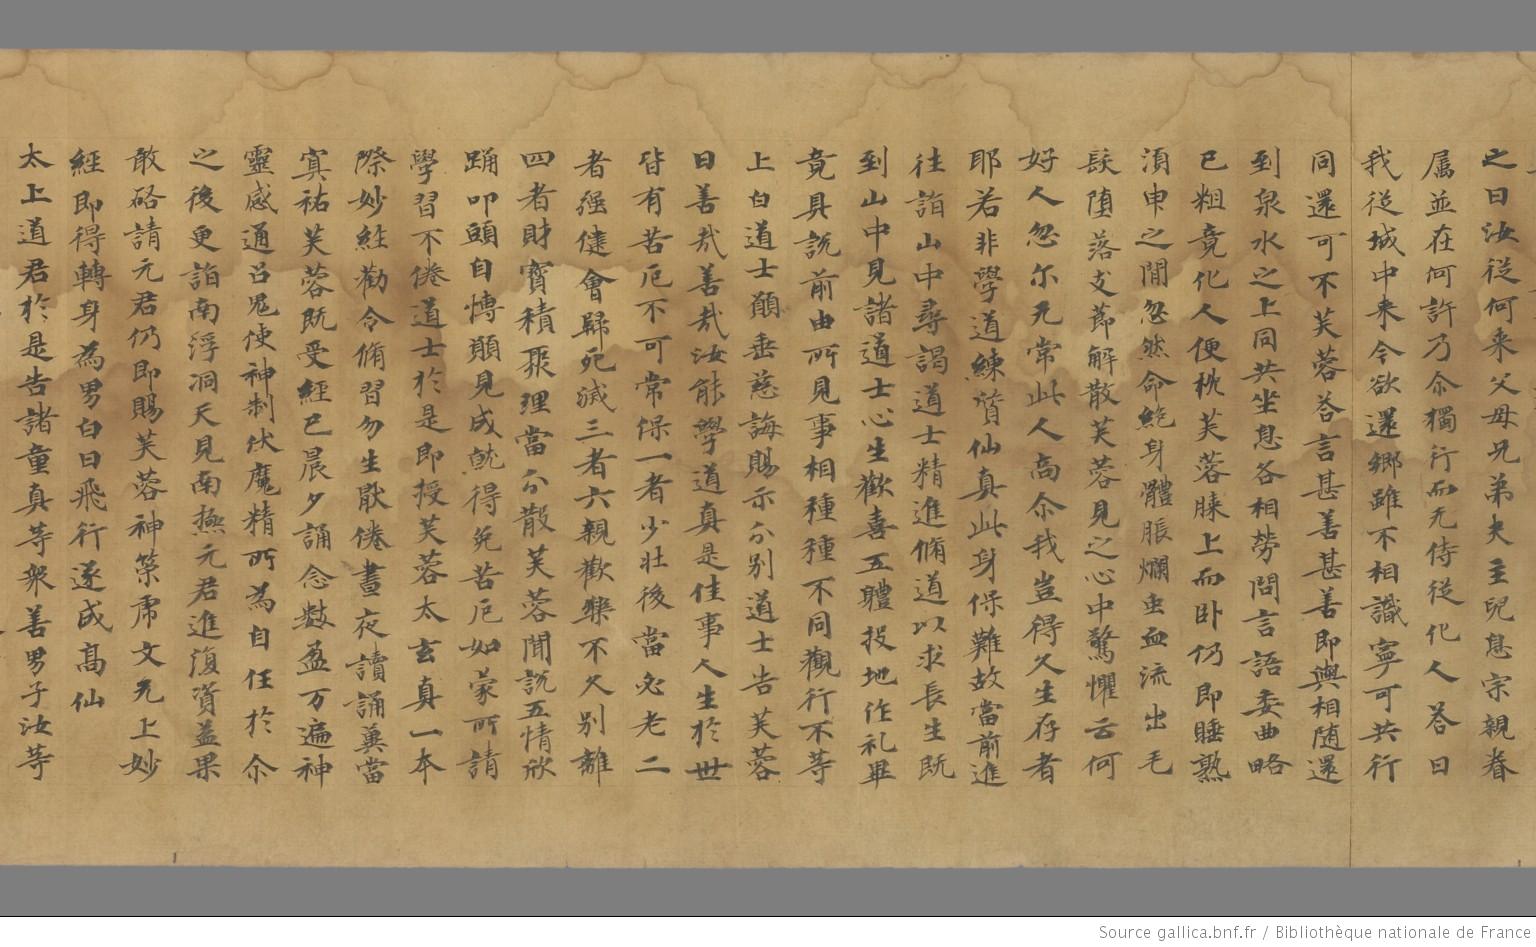 之曰汝從何来父母兄弟夫主兒息宗親眷
属並在何許乃尒獨行而无侍從化人荅曰
我從城中来今欲還鄉雖不相識寧可共行
同還可不芙蓉荅言甚善甚善即與相随還
到泉水之上同共坐息各相勞問言語委曲略
已粗竟化人便枕芙蓉膝上而卧仍即睡熟
湏申之間忽然命絶身體脹爛虫血流出毛
髮堕落支莭解散芙蓉見之心中驚懼云何
好人忽尔无常此人高尒我豈得久生存者
耶若非學道練質仙真此身保難故當前進
往詣山中尋謁道士精進脩道以求長生既
到山中見諸道士心生歡喜五體投地作礼畢
竟具說前由所見事相種種不同觀行不等
上白道士願垂慈誨賜示分别道士告芙蓉
曰善㢤善㢤汝能學道真是佳事人生於世
皆有苦厄不可常保一者少壮後當必老二
者強健會歸死滅三者六親歡樂不久别離
四者財寳積聚理當分散芙蓉聞説五情欣
踊叩頭自愽願見成就得免苦厄如蒙所請
學習不倦道士於是即授芙蓉太玄真一本
際妙経勸令脩習勿生猒倦晝夜讀誦冀當
寘祐芙蓉既受經已晨夕誦念數盈万遍神
靈感通召鬼使神制伏魔精所為自任於尒
之後更詣南浮洞天見南極元君進復資益果
敢啓請元君仍即賜芙蓉神策虎文无上妙
經即得轉身為男白日飛行遂成髙仙
太上道君於是告諸童真等衆善男子汝等
Source gallica.bnf.fr / Bibliothèque nationale de France